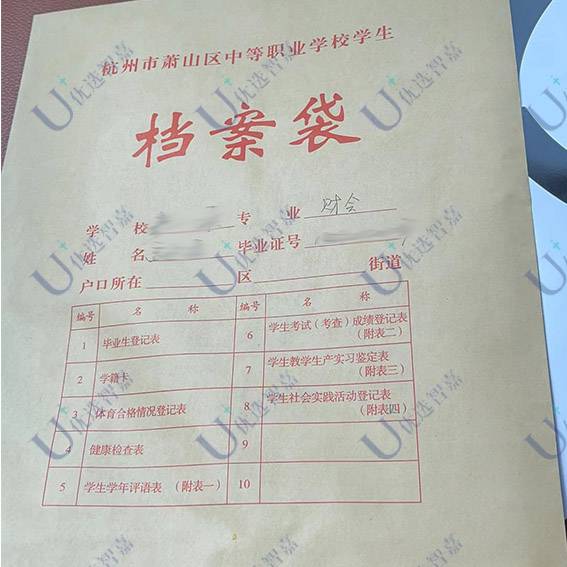 杭州市萧山区中等职业学校学生
档案袋
学 校 专 业 财会
姓 名 毕业证号
户口所在 区 街道
编号 名 称 编号 名 称
1 毕业生登记表 6 学生考试(考查)成绩登记表(附表二)
2 学籍卡 7 学生教学生产实习鉴定表(附表三)
3 体育合格情况登记表 8 学生社会实践活动登记表(附表四)
4 健康检查表 9
5 学生学年评语表 (附表一) 10
U+优选智嘉